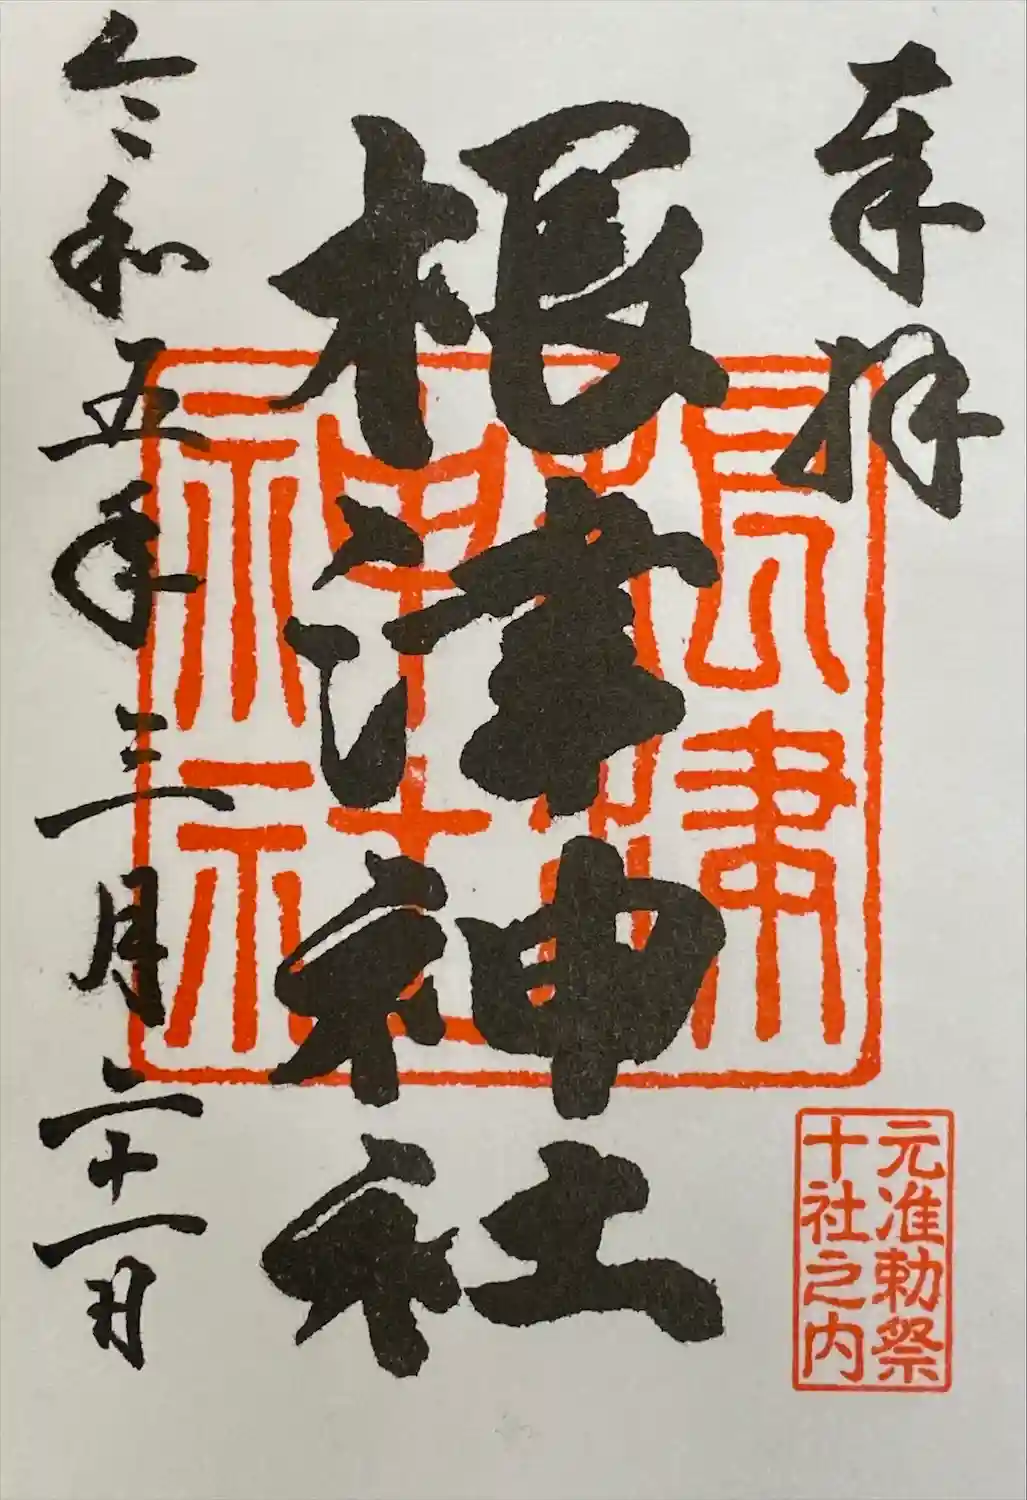 奉拝
根津神社
令和五年三月二十一日
根津神社
元准勅祭
十社之内